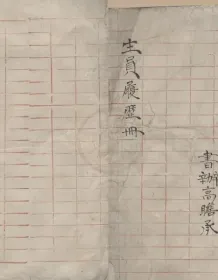 生員履歷冊
書辦高騰承